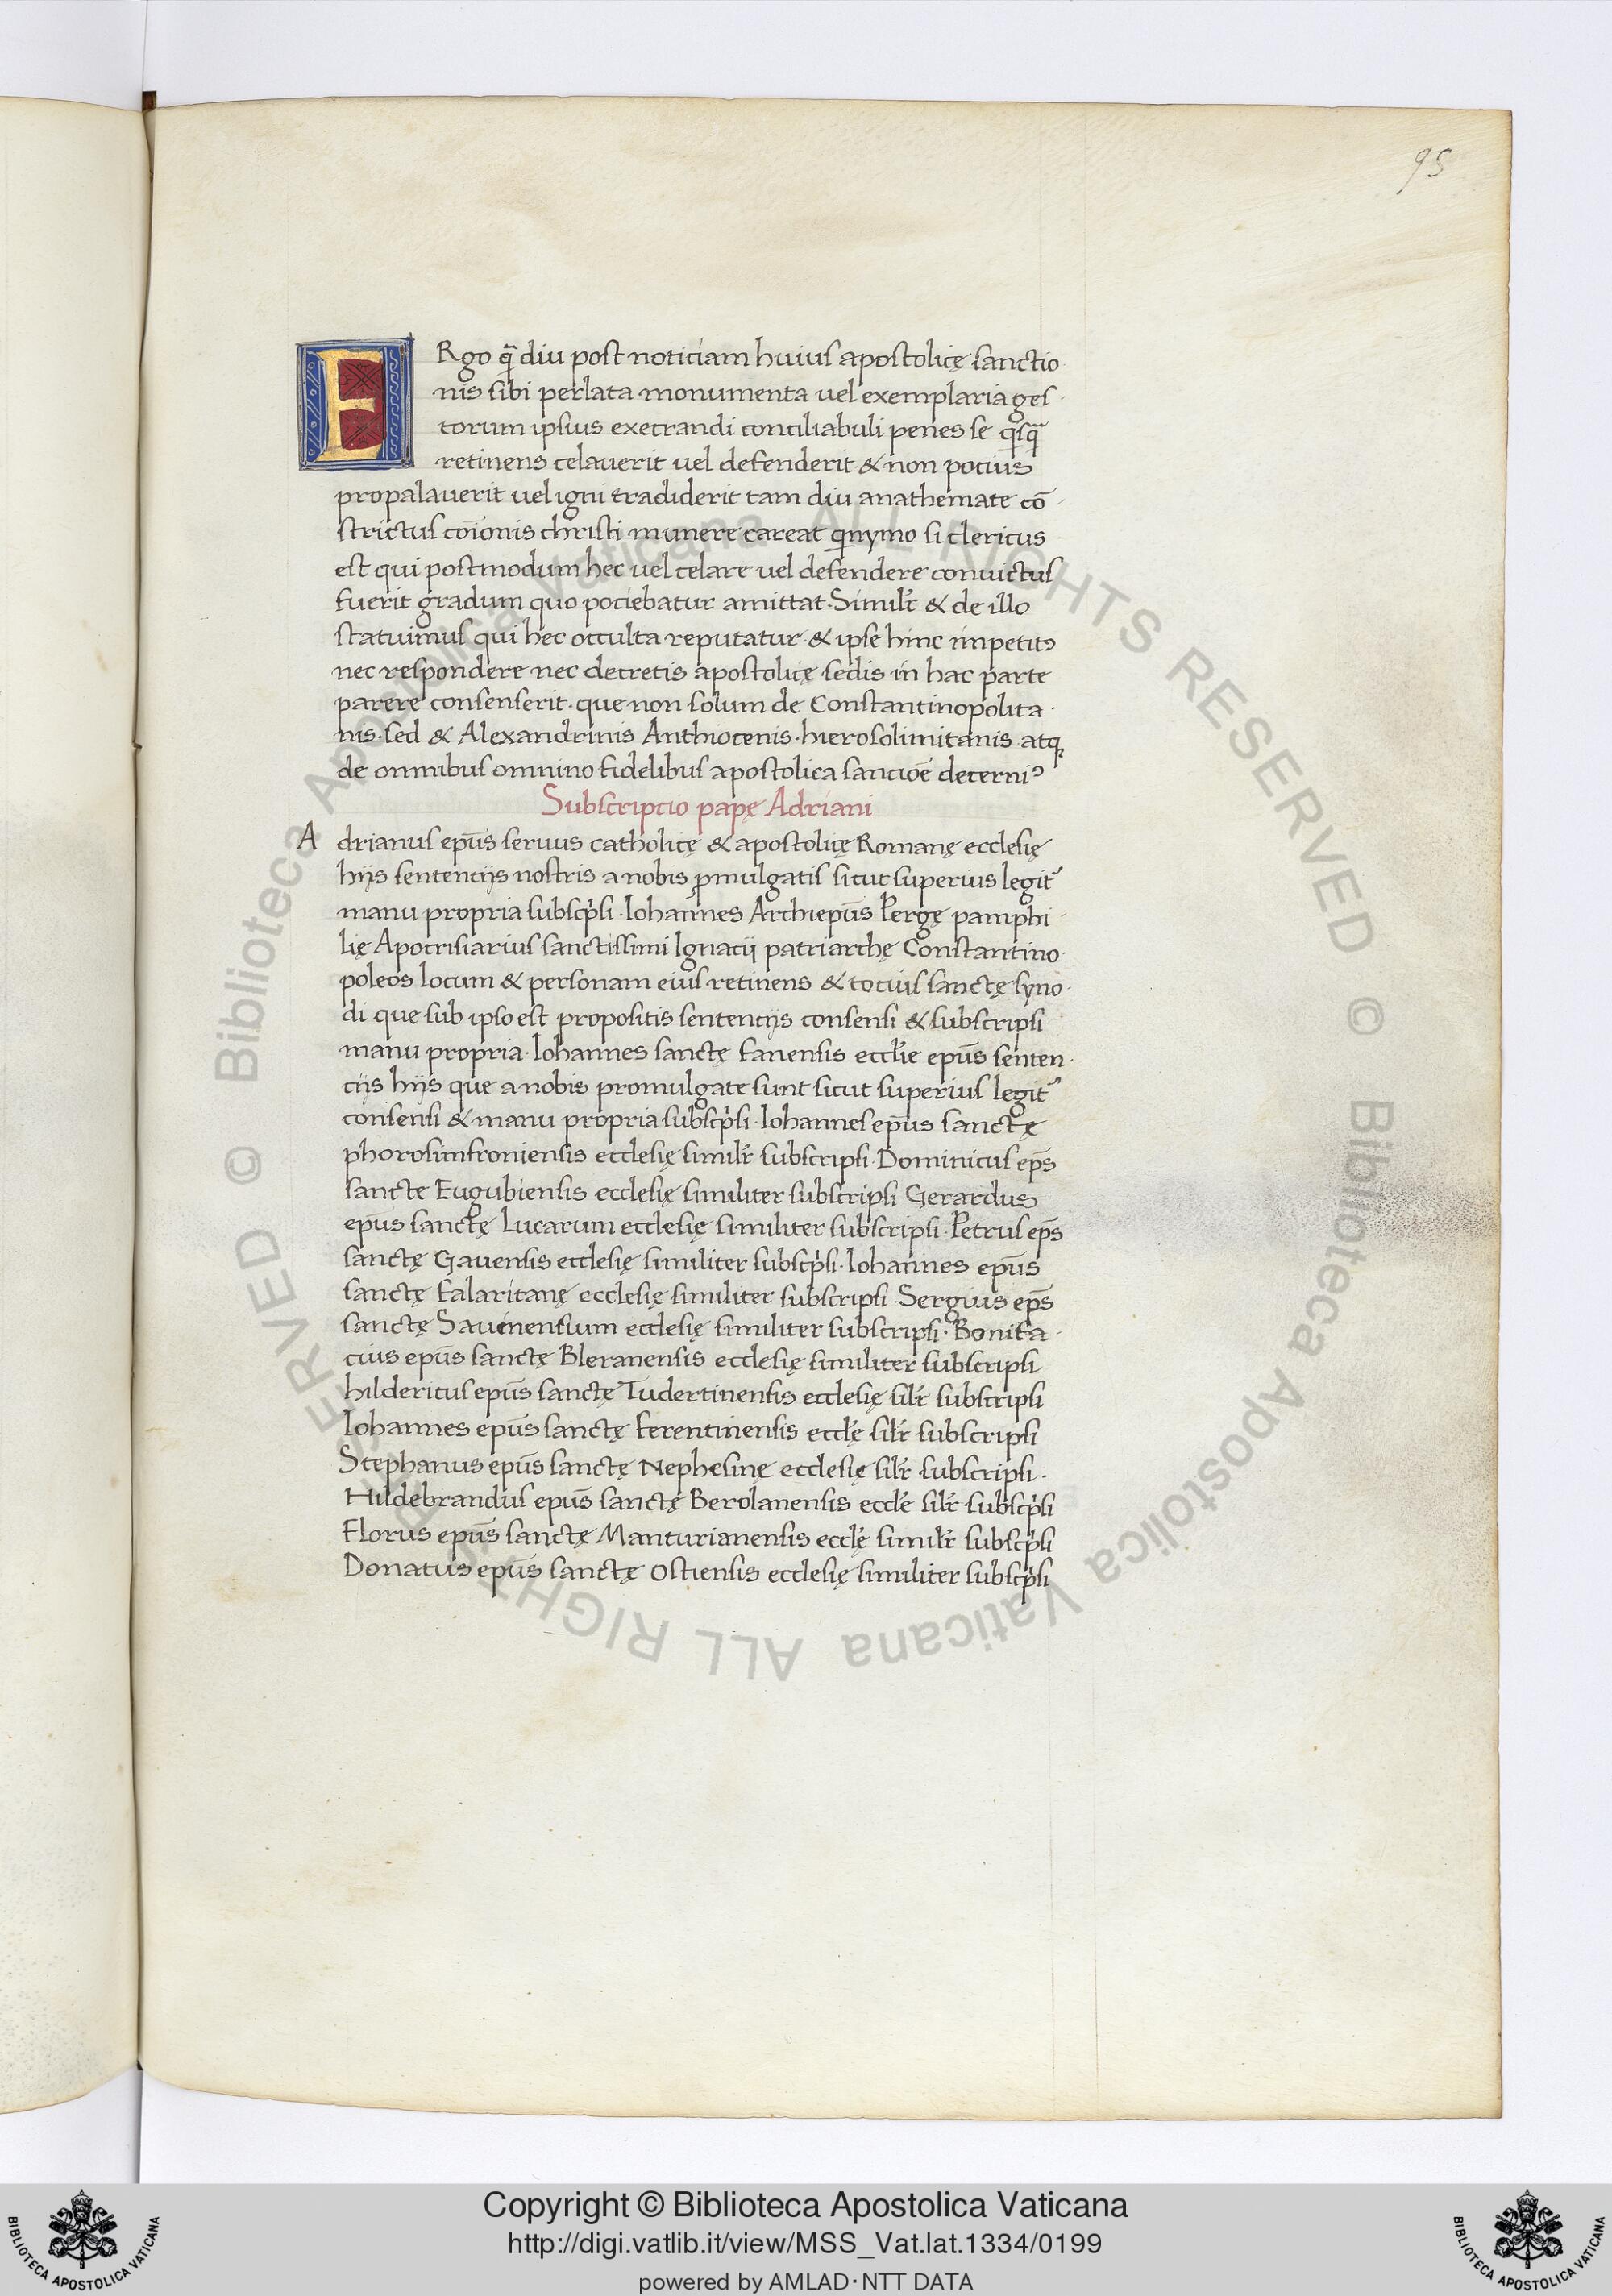 95
ERgo q̄ diu post noticiam huius apostolicę sanctio
nis sibi perlata monumenta uel exemplaria ges
torum ipsius execrandi conciliabuli penes se
retinens celauerit uel defenderit & non potius
propalauerit uel igni tradiderit tam diu anathemate cō
strictus coīonis christi munere careat qnymo si clericus
est qui postmodum hec uel celare uel defendere conuictus
fuerit gradum quo pociebatur amittat. Similr̄ & de illo
statuimus qui hec occulta reputatur & ipse hinc impetitꝰ
nec respondere nec decretis apostolicę sedis in hac parte
parere consenserit. que non solum de Constantinopolita
nis. sed & Alexandrinis Anthiocenis. hierosolimitanis atqꝫ
de omnibus omnino fidelibus apostolica sanctiōe decerniꝰ
Subscriptio papę Adriani
Adrianus ep̄us seruus catholicę & apostolicę Romanę ecclesię
hijs sentencijs nostris a nobis ꝓmulgatis sicut superius legit᷑
manu propria subscp̍si. Iohannes Archiep̄us Pergę pamphi
lię Apocrisiarius sanctissimi Ignacij patriarchę Constantino
poleos locum & personam eius retinens & tocius sanctę syno
di que sub ipso est propositis sentencijs consensi & subscripsi
manu propria. Iohannes sanctę fanensis eccl̄ie ep̄us senten
cijs hijs que a nobis promulgate sunt sicut superius legit᷑
consensi & manu propria subscp̍si. Iohannes ep̄us sanctę
phorosimfroniensis ecclesię similr̄ subscripsi. Dominicus ep̄s
sancte Eugubiensis ecclesię similiter subscripsi Gerardus
ep̄us sanctę Lucarum ecclesię similiter subscripsi. Petrus ep̄s
sanctę Gauensis ecclesię similiter subscp̍si. Iohannes ep̄us
sanctę falaritanę ecclesię similiter subscripsi. Sergius ep̄s
sanctę Sauinensium ecclesię similiter subscripsi. Bonifa
cius ep̄us sanctę Bleranensis ecclesię similiter subscripsi
hildericus ep̄us sanctę Tudertinensis ecclesię silr̄ subscripsi
Iohannes ep̄us sanctę ferentinensis eccl̄ę silr̄ subscripsi
Stephanus ep̄us sanctę Nephesinę ecclesię silr̄ subscripsi.
Hildebrandus ep̄us sanctę Berolanensis eccl̄e silr̄ subscp̍si
Florus ep̄us sanctę Manturianensis eccl̄ę similr̄ subscp̍si
Donatus ep̄us sanctę Ostiensis ecclesię similiter subscp̍si
© Biblioteca Apostolica Vaticana ALL RIGHTS RESERVED © Biblioteca Apostolica Vaticana ALL RIGHTS RESERVED
Copyright © Biblioteca Apostolica Vaticana
http://digi.vatlib.it/view/MSS_Vat.lat.1334/0199
powered by AMLAD·NTT DATA
BIBLIOTECA APOSTOLICA VATICANA
BIBLIOTECA APOSTOLICA VATICANA